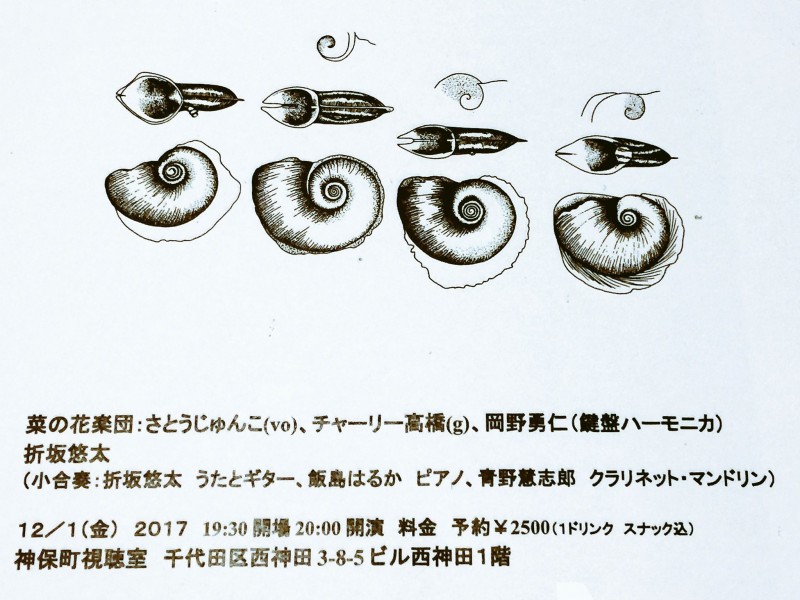 菜の花楽団:さとうじゅんこ(vo)、チャーリー高橋(g)、岡野勇仁(鍵盤ハーモニカ)
折坂悠太
(小合奏:折坂悠太 うたとギター、飯島はるか ピアノ、青野慧志郎 クラリネット・マンドリン)
12/1(金) 2017 19:30 開場 20:00 開演 料金 予約¥2500(1ドリンク スナック込)
神保町視聴室 千代田区西神田 3-8-5 ビル西神田1階